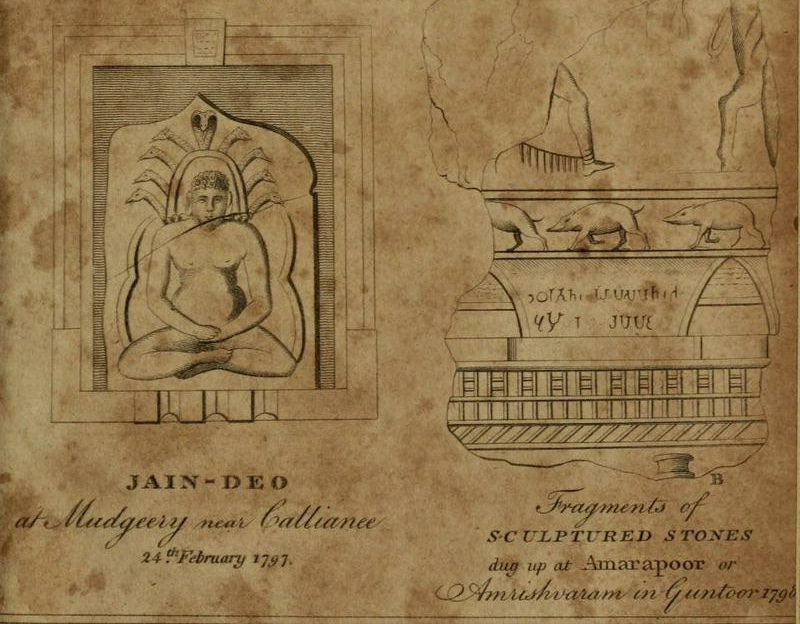 JAIN-DEO
at Mudgeery near Callianee
24th February 1797.
B
Fragments of
SCULPTURED STONES
dug up at Amarapoor or
Amrishvaram in Guntoor 1798